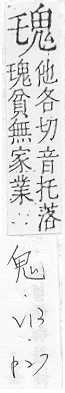 他各切音托落
貧無家業…
鬼
V13